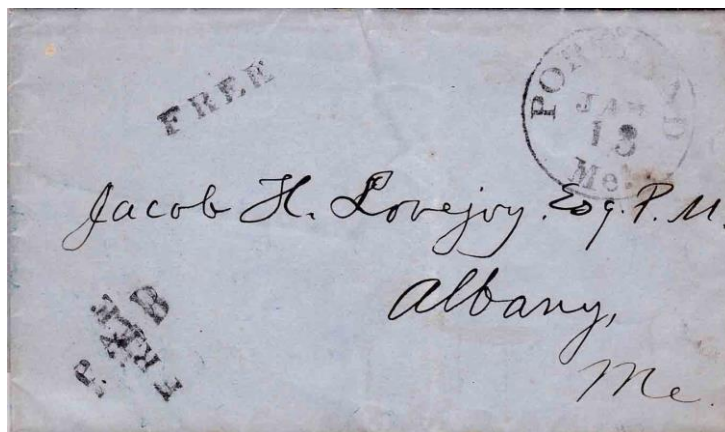 FREE
PORTLAND
JAN
13
Me.
Jacob H. Lovejoy. Esq. P. M.
Albany,
Me.
FREE